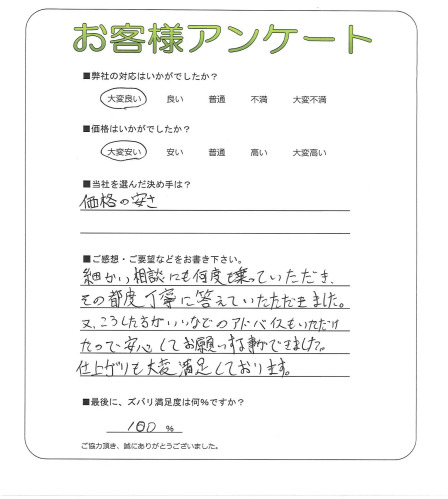 お客様アンケート
■弊社の対応はいかがでしたか?
大変良い 良い 普通 不満 大変不満
■価格はいかがでしたか?
大変安い 安い 普通 高い 大変高い
■当社を選んだ決め手は?
価格の安さ
■ご感想・ご要望などをお書き下さい。
細かい相談にも何度も乗っていただき、
その都度丁寧に答えていたただきました。
又、こうした方がいいなどのアドバイスもいただけ
たので安心してお願いする事ができました。
仕上がりも大変満足しております。
■最後に、ズバリ満足度は何%ですか?
100 %
ご協力頂き、誠にありがとうございました。